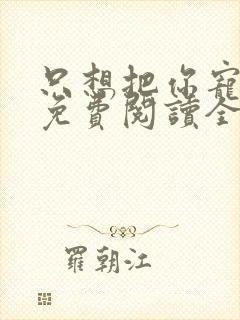 只想把你寵
免費閱讀全
羅朝江